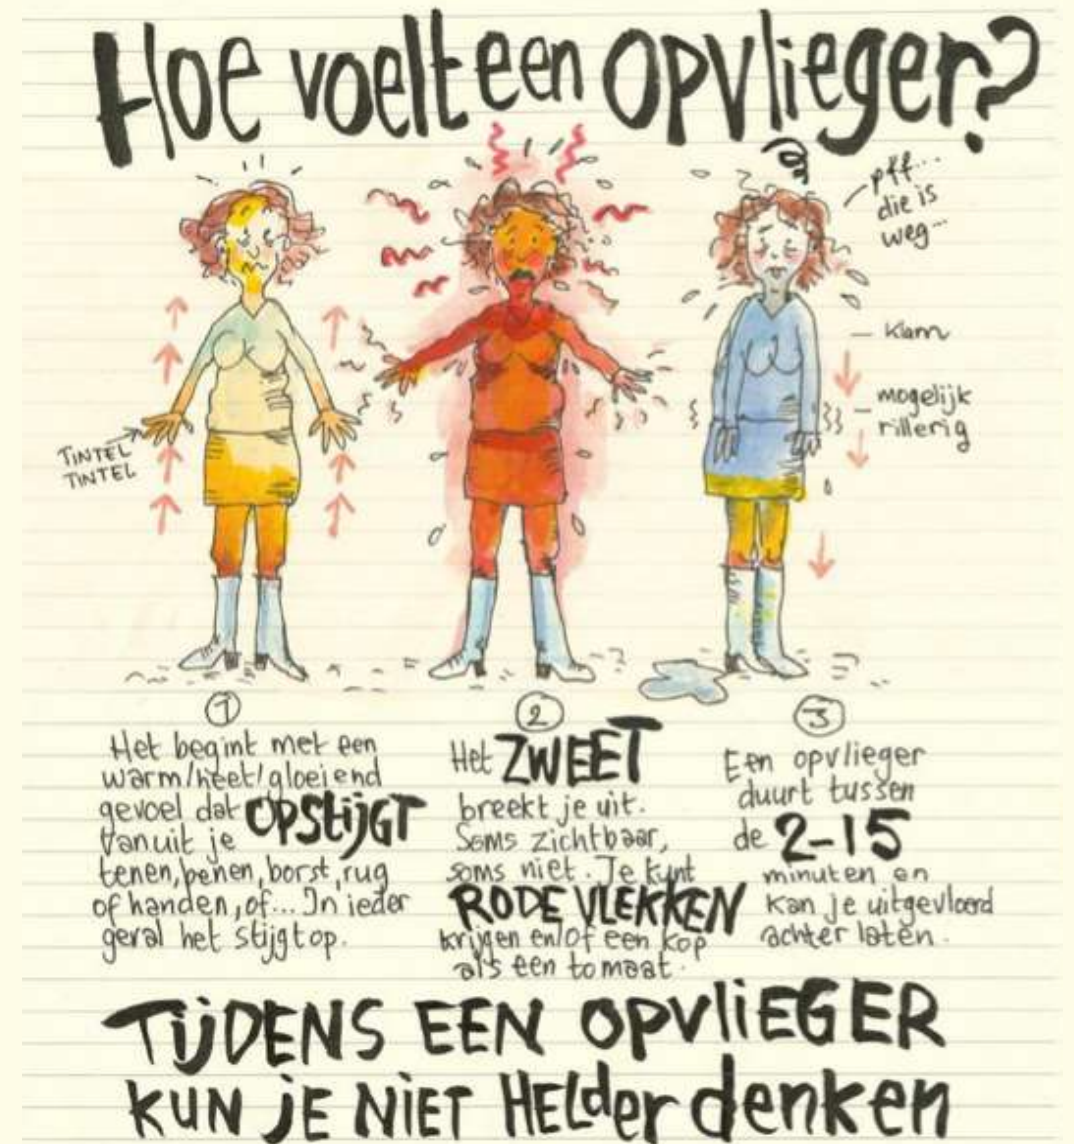 Hoe voelt een opvlieger?
pff...
die is
weg...
klam
mogelijk
rillerig
TINTEL
TINTEL
1
Het begint met een
warm/heet/gloeiend
gevoel dat OPSTIJGT
vanuit je
tenen, benen, borst, rug
of handen, of... In ieder
geval het stijgt op.
2
Het ZWEET
breekt je uit.
Soms zichtbaar,
soms niet. Je kunt
RODE VLEKKEN
krijgen en/of een kop
als een tomaat.
3
Een opvlieger
duurt tussen
de 2-15
minuten en
kan je uitgevloerd
achter laten.
TIJDENS EEN OPVLIEGER
KUN JE NIET HELDER denken